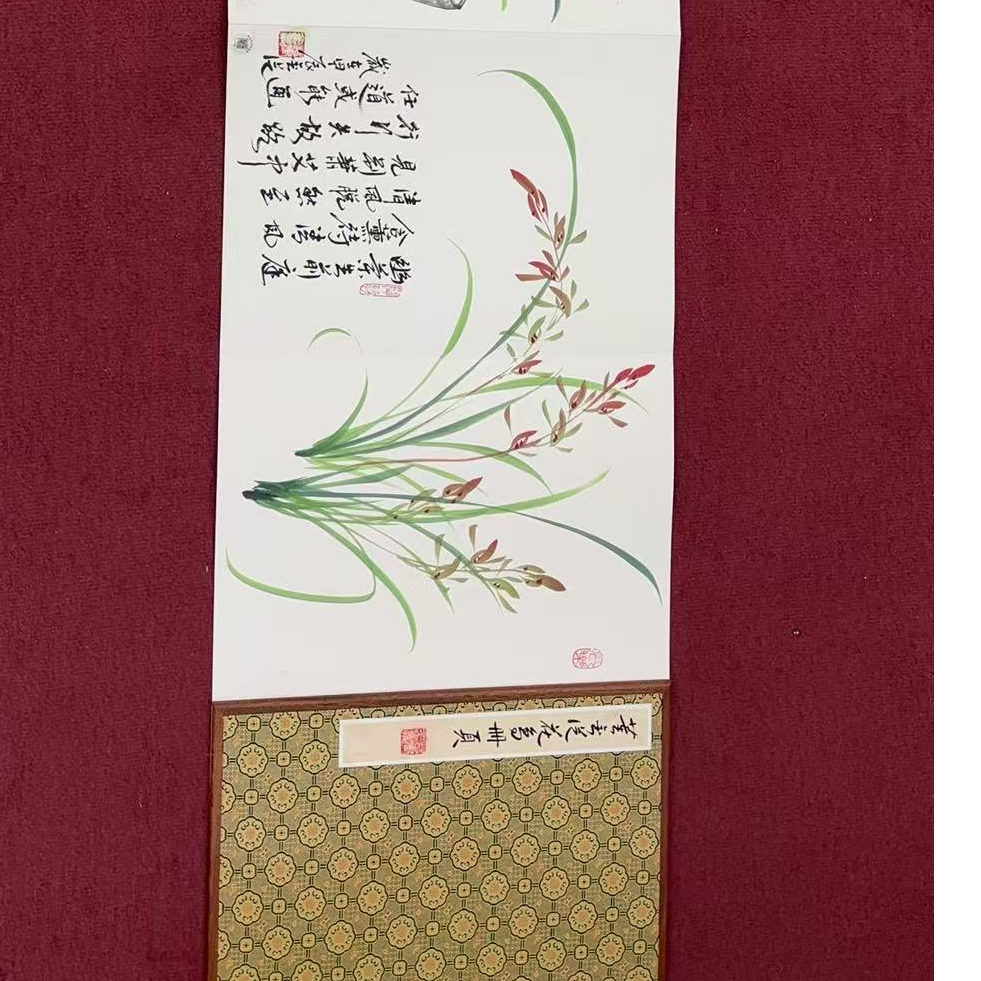 幽蘭生前庭
含薰待清風
清風脫然至
見別蕭艾中
行行失故路
任道或能通
歲在甲辰
花鳥冊頁